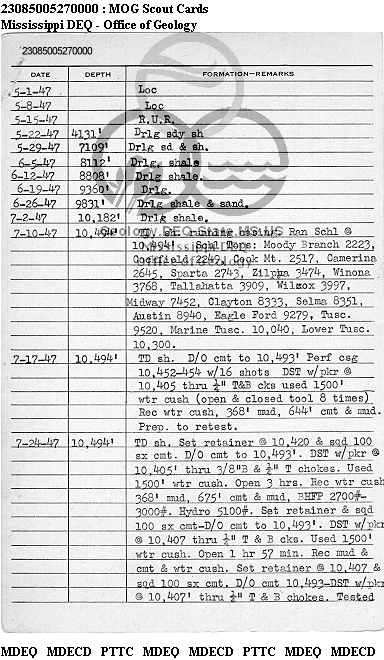 23085005270000 : MOG Scout Cards
Mississippi DEQ - Office of Geology
23085005270000
DATE DEPTH FORMATION—REMARKS
5-1-47 Loc
5-8-47 Loc
5-15-47 R.U.R.
5-22-47 4131' Drlg sdy sh
5-29-47 7109' Drlg sd & sh.
6-5-47 8112' Drlg. shale
6-12-47 8808' Drlg shale.
6-19-47 9360' Drlg.
6-26-47 9831' Drlg shale & sand.
7-2-47 10,182' Drlg shale.
7-10-47 10,494' TD, sh. running casing. Ran Schl @
10,494'. Schl Tops: Moody Branch 2223,
Cockfield 2249, Cook Mt. 2517, Camerina
2645, Sparta 2743, Zilpha 3474, Winona
3768, Tallahatta 3909, Wilcox 3997,
Midway 7452, Clayton 8333, Selma 8351,
Austin 8940, Eagle Ford 9279, Tusc.
9520, Marine Tusc. 10,040, Lower Tusc.
10,300.
7-17-47 10,494' TD sh. D/O cmt to 10,493' Perf csg
10,452-454 w/16 shots DST w/pkr @
10,405 thru ¼" T&B cks used 1500'
wtr cush (open & closed tool 8 times)
Rec wtr cush, 368' mud, 644' cmt & mud.
Prep. to retest.
7-24-47 10,494' TD sh. Set retainer @ 10,420 & sqd 100
sx cmt. D/O cmt to 10,493'. DST w/pkr @
10,405' thru 3/8"B & ¼" T chokes. Used
1500' wtr cush. Open 3 hrs. Rec wtr cush
368' mud, 675' cmt & mud, BHFP 2700#-
3000#. Hydro 5100#. Set retainer & sqd
100 sx cmt-D/O cmt to 10,493'. DST w/pkr
@ 10,407 thru ¼" T & B cks. Used 1500'
wtr cush. Open 1 hr 57 min. Rec mud &
cmt & wtr cush. Set retainer @ 10,407 &
sqd 100 sx cmt. D/O cmt 10,493-DST w/pkr
@ 10,407' thru ¼" T & B chokes. Tested
MDEQ MDECD PTTC MDEQ MDECD PTTC MDEQ MDECD